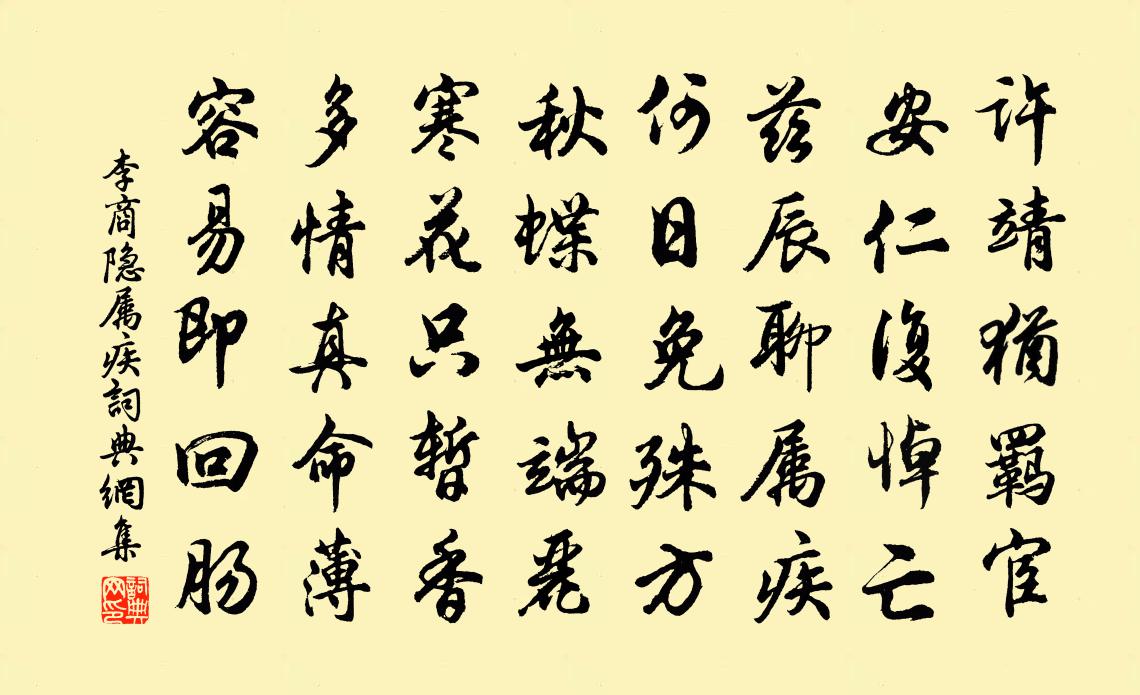 许靖猶羁宦
安仁復悼亡
兹辰聊属疾
何日免殊方
秋蝶無端麗
寒花只暫香
多情真命薄
容易即回肠
李商隐属疾詞典網集
詞典網印